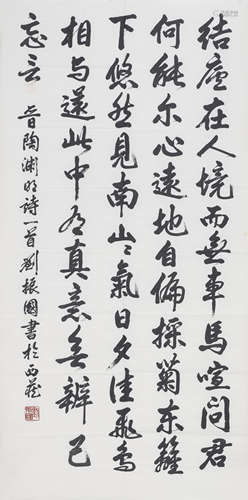 结廬在人境而無車馬喧问君
何能尔心遠地自偏採菊东籬
下悠然见南山々氣日夕佳飛鸟
相与還此中有真意辨已
忘言 晋陶渊明诗一首劉振國書於西蔵